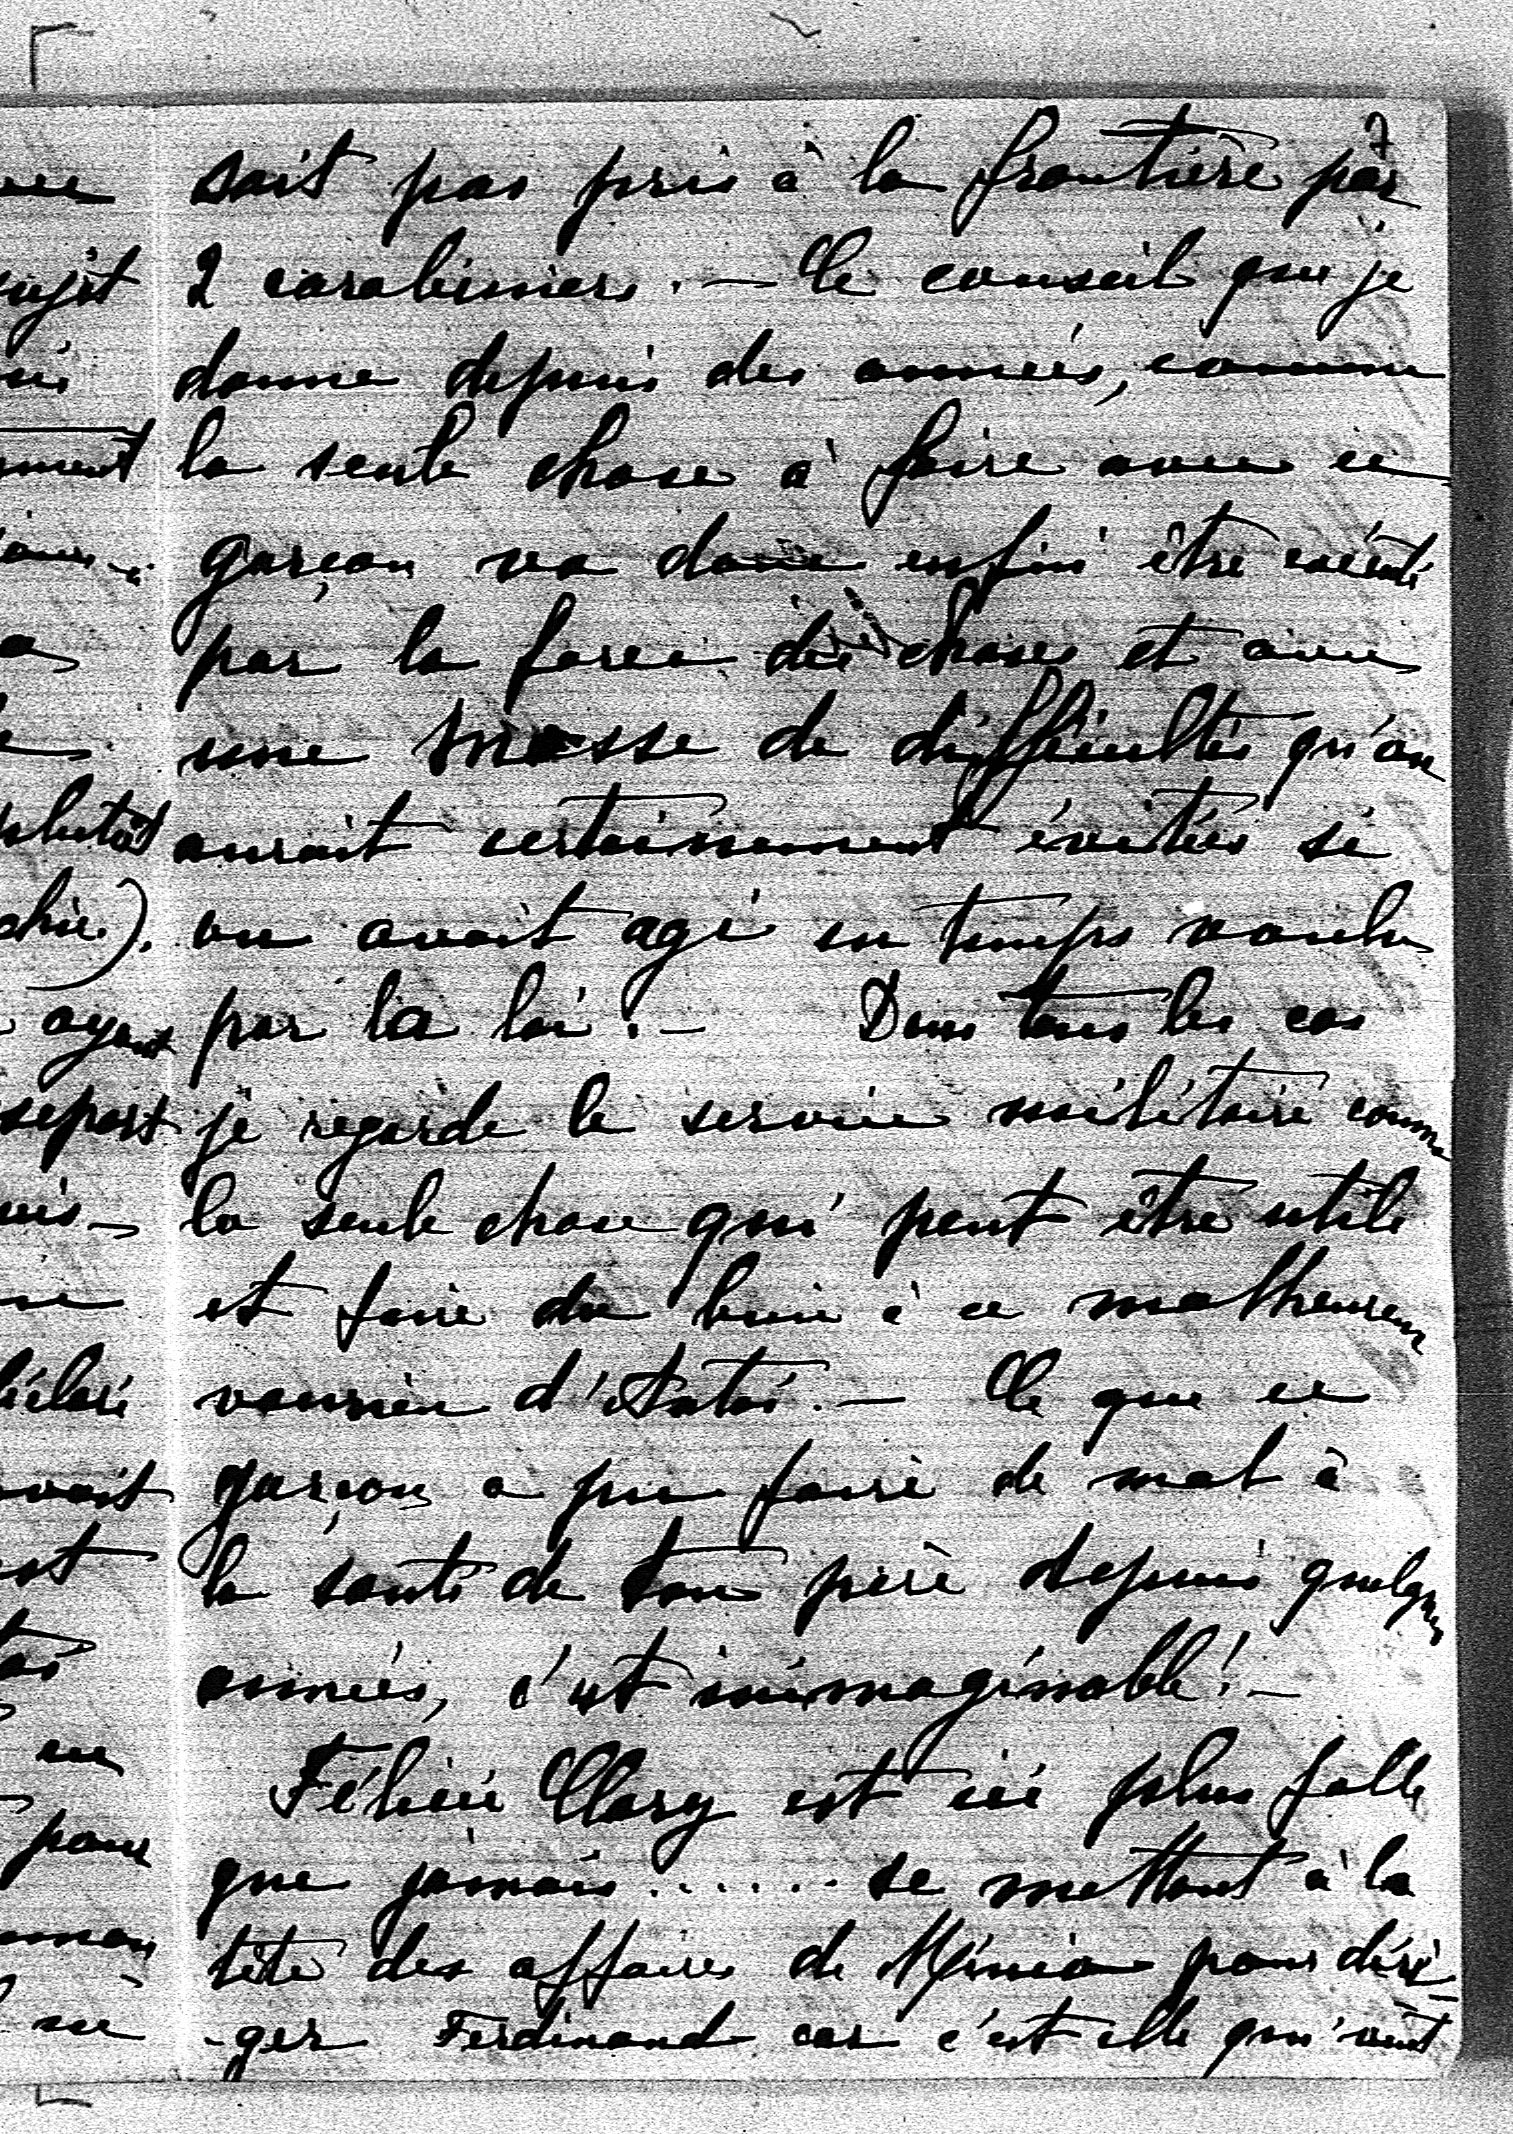 7
soit pas pris à la frontière par
2 carabiniers. — Ce conseil que je
donne depuis des années, comme
la seule chose à faire avec ce
garçon va donc enfin être exécuté
par la force des choses et avec
une masse de difficultés qu'on
aurait certainement évitées si
on avait agi en temps voulu
par la loi. — Dans tous les cas
je regarde le service militaire comme
la seule chose qui peut être utile
et faire du bien à ce malheureux
vaurien d'Antoi. — Ce que ce
garçon a pu faire de mal à
la santé de ton père depuis quelques
années, c'est inimaginable! —
Félicie Clary est ici plus folle
que jamais...... se mettant à la
tête des affaires de Minia pour diri-
-ger Ferdinand car c'est elle qui veut